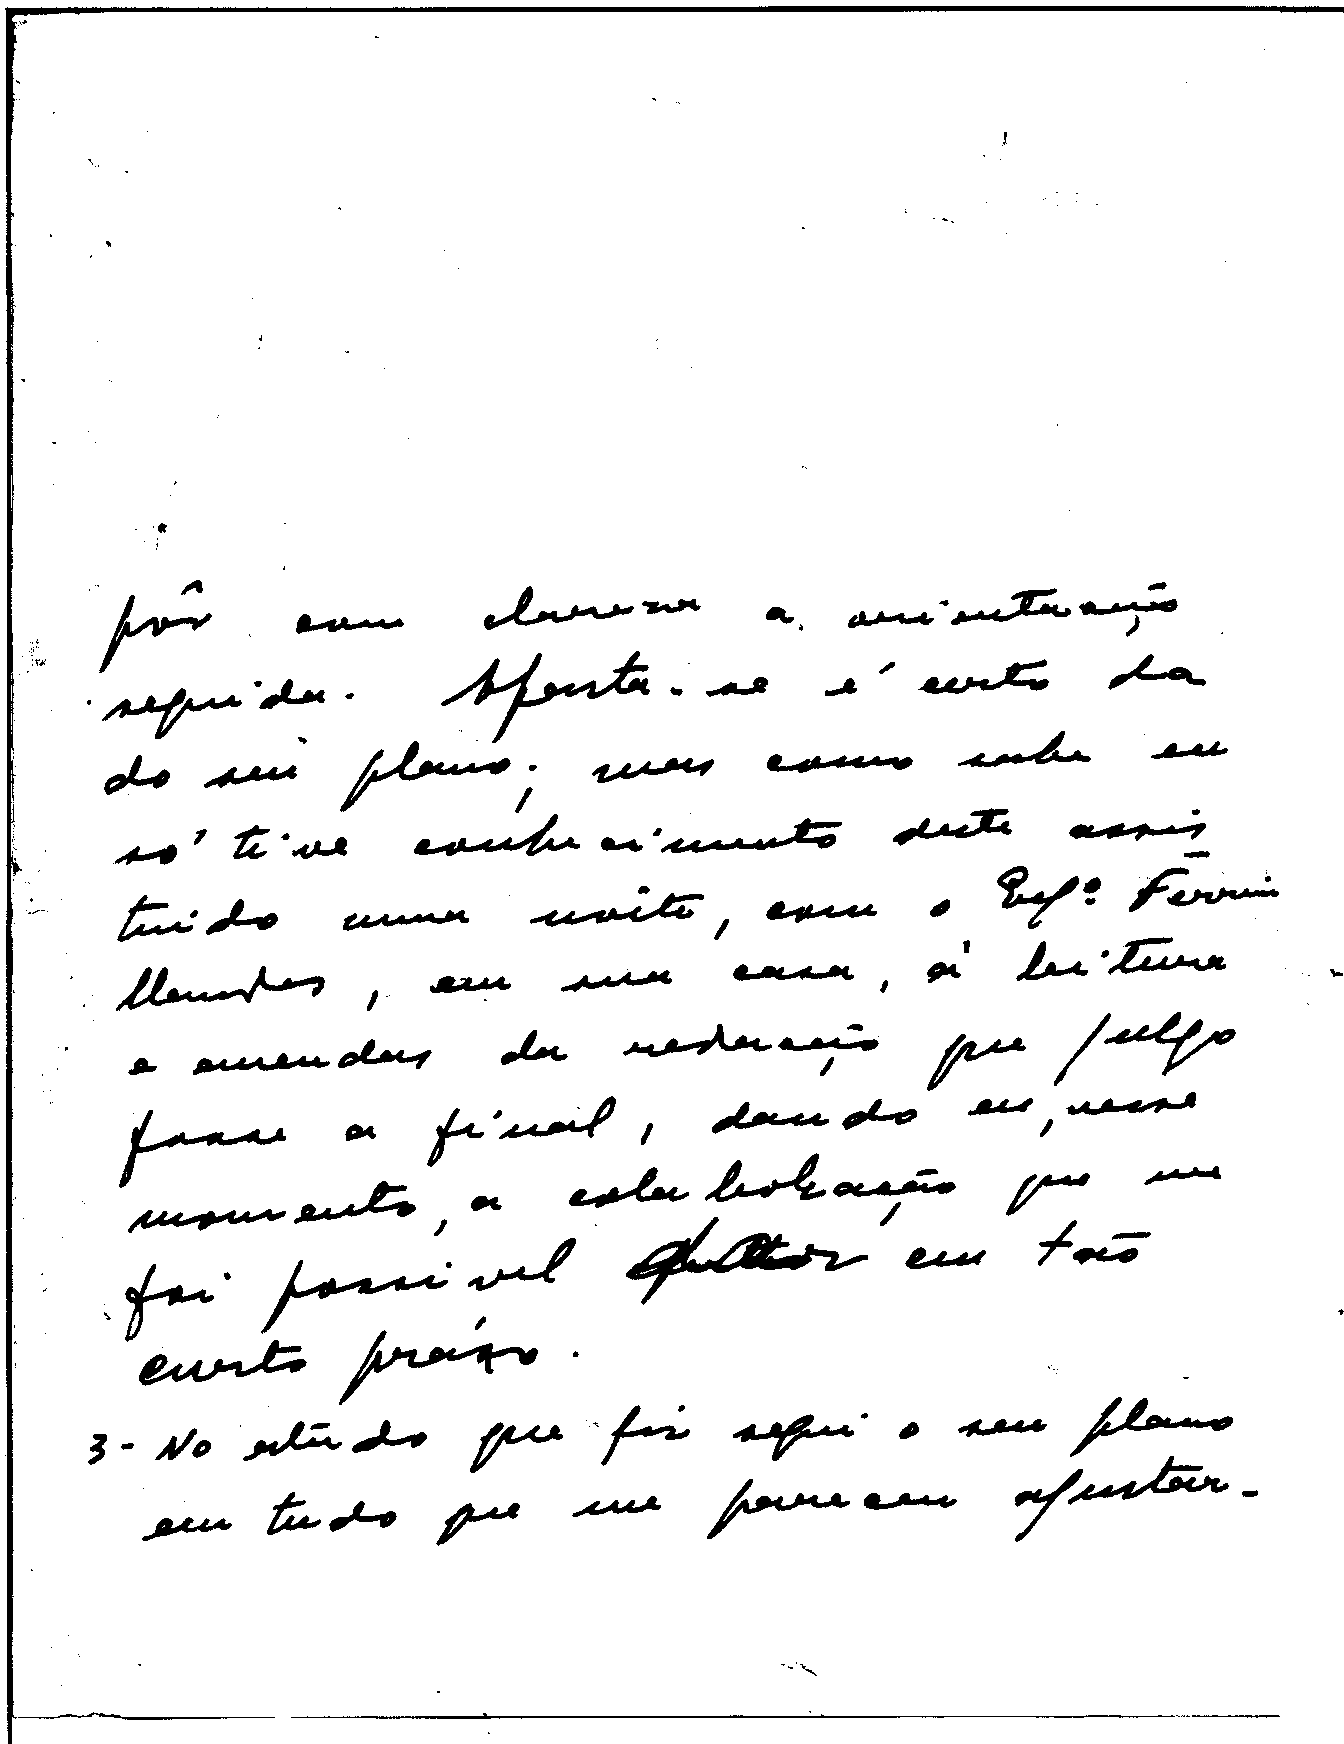 pôr com clareza a orientação
seguida. Afasta-se é certo da
do seu plano; mas como sabe eu
só tive conhecimento deste assis
tindo numa noite, com o Engº. Ferrei
Mendes, em sua casa, à leitura
e emendas da redacção que julgo
fosse a final, dando eu, nesse
momento, a colaboração que me
foi possivel em tão
curto prazo.
3- No estudo que fiz segui o seu plano
em tudo que me pareceu ajustar-